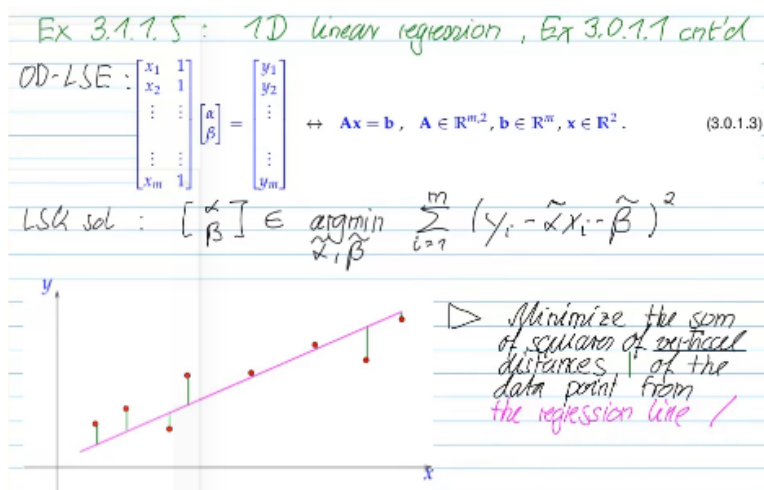 Ex 3.1.1.5 : 1D linear regression, Ex 3.0.1.1 cnt'd
OD-LSE : [x₁ 1; x₂ 1; ⋮ ⋮; ⋮ ⋮; xₘ 1] [α; β] = [y₁; y₂; ⋮; ⋮; yₘ] ↔ Ax = b , A ∈ ℝ^{m,2}, b ∈ ℝ^m, x ∈ ℝ². (3.0.1.3)
LSQ sol : [α; β] ∈ argmin_{α̃, β̃} ∑_{i=1}^{m} (yᵢ - α̃xᵢ - β̃)²
y
▷ Minimize the sum
of squares of vertical
distances | of the
data point from
the regression line /
x